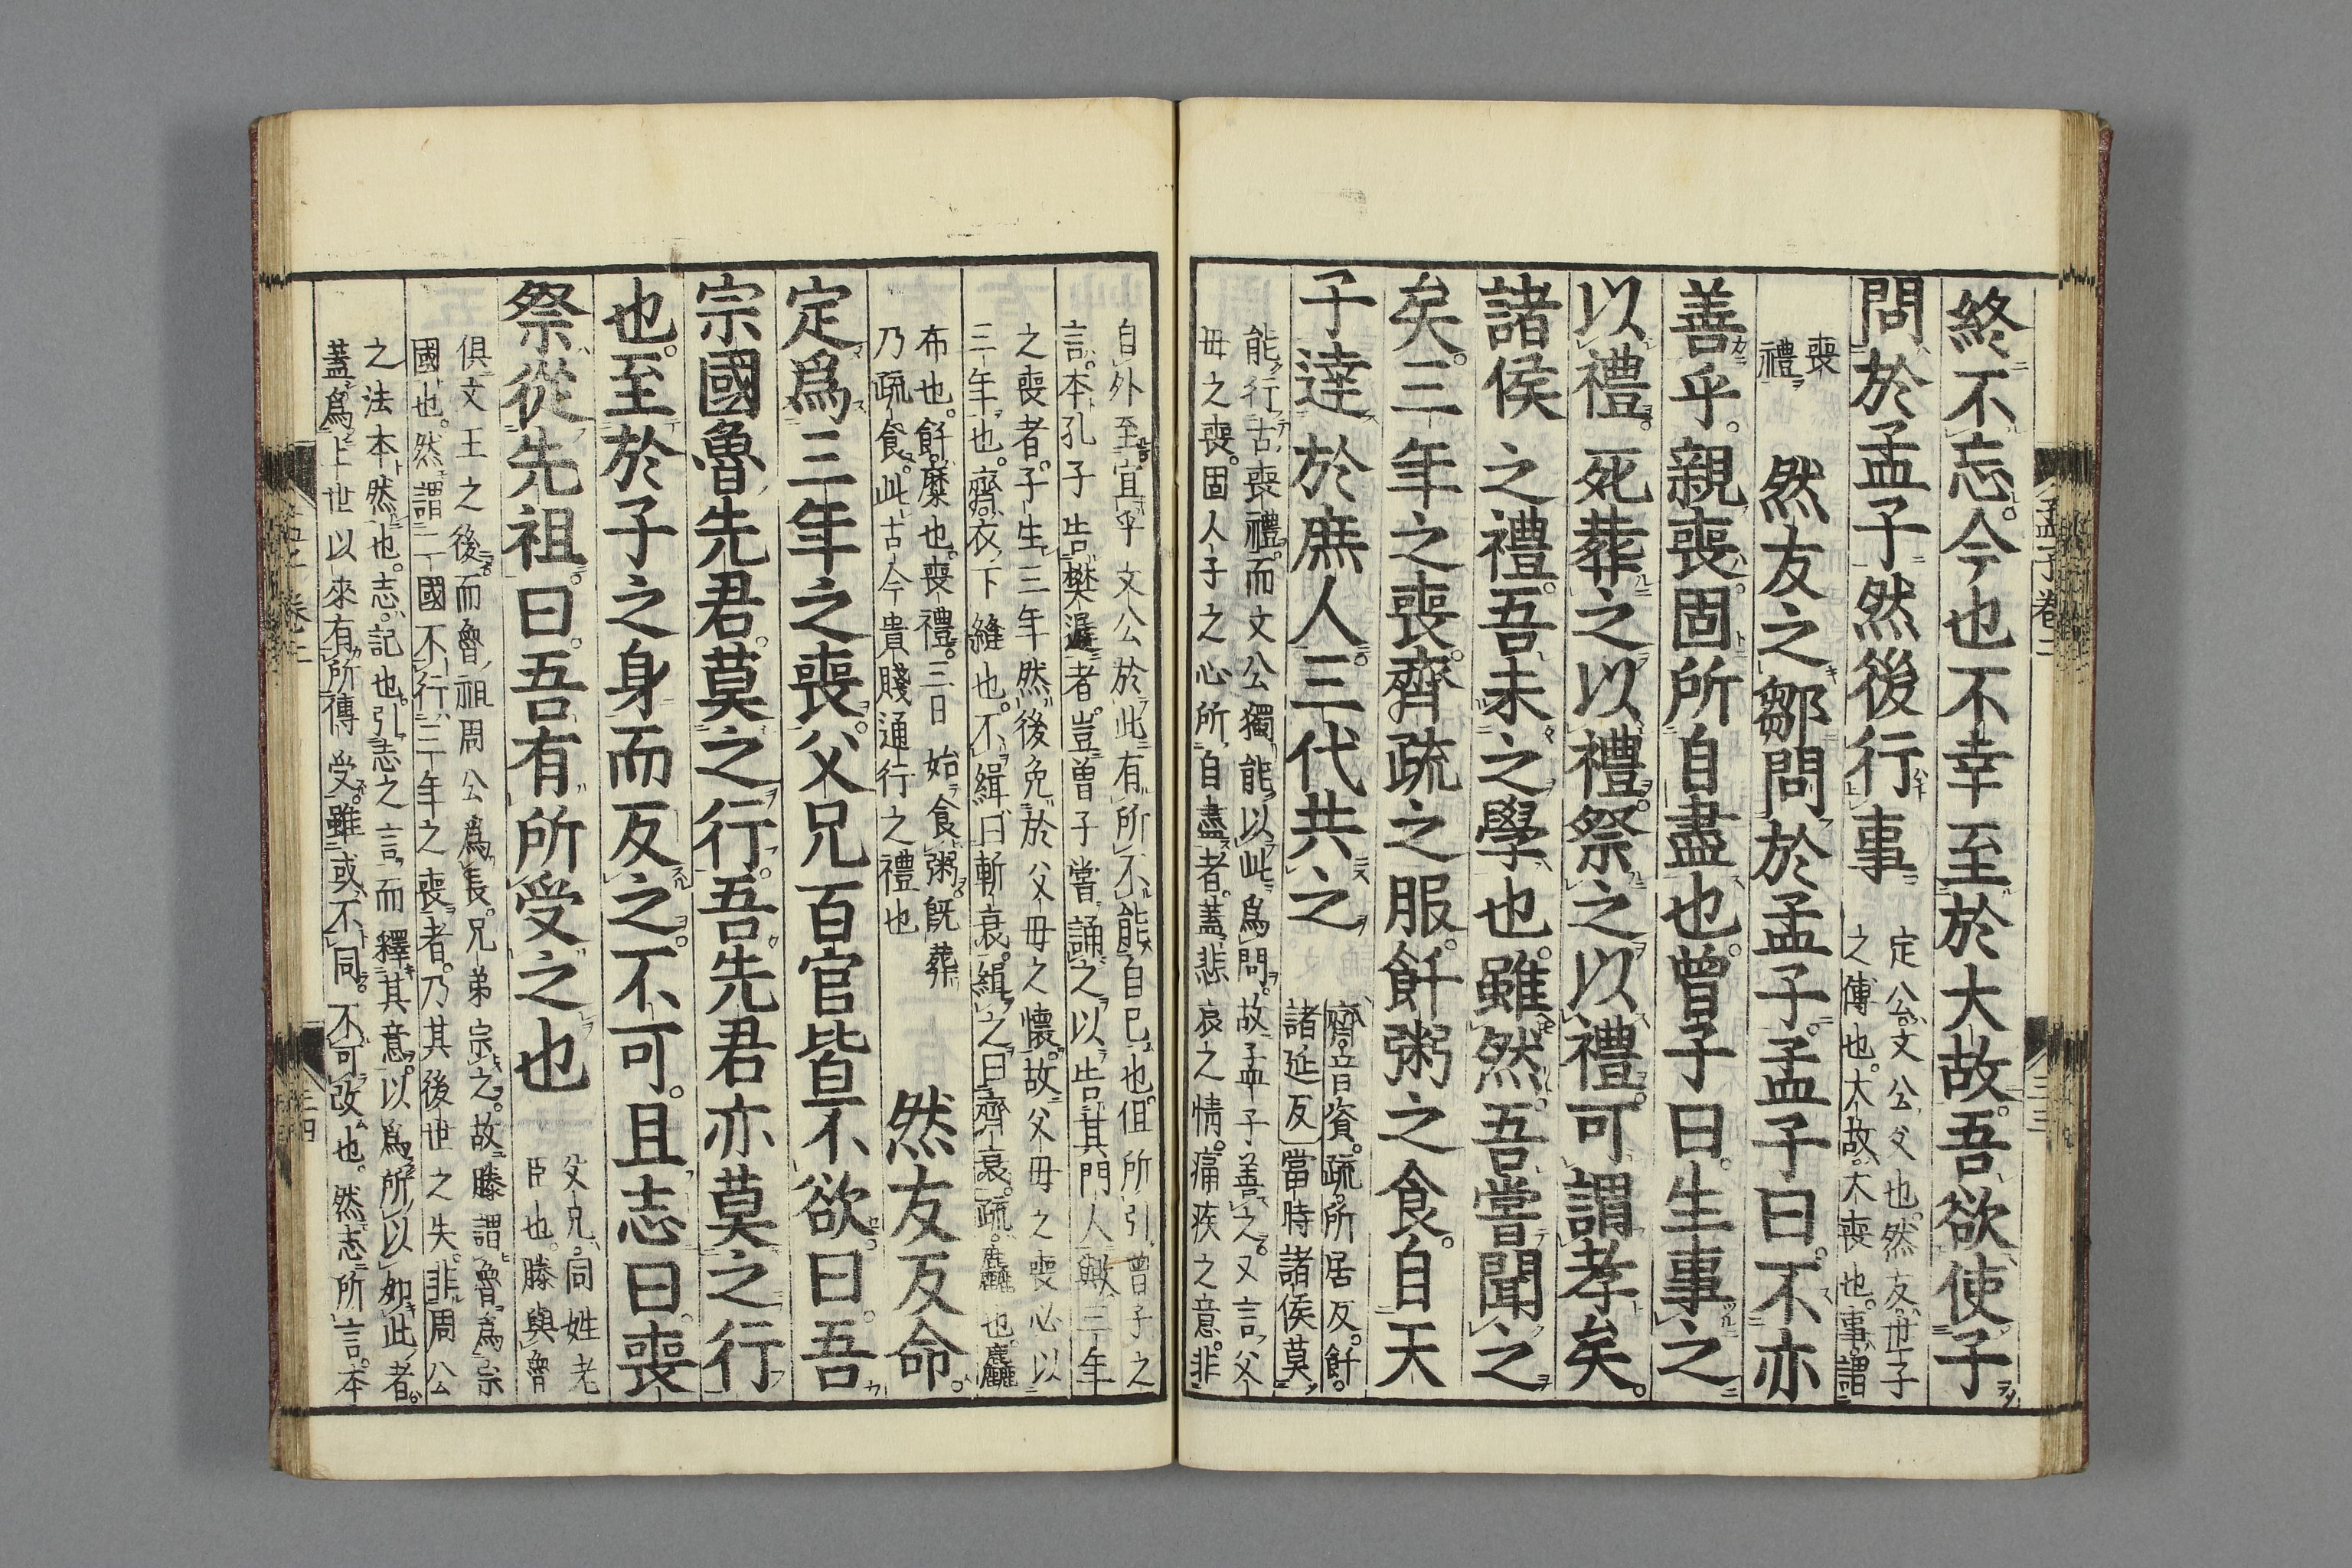 終不忘今也不幸至於大故吾欲使子
問於孟子然後行事
定公文公父也然友世子
之傅也大故大喪也事謂
喪
禮
然友之鄒問於孟子孟子曰不亦
善乎親喪固所自盡也曾子曰生事之
以禮死葬之以禮祭之以禮可謂孝矣
諸侯之禮吾未之學也雖然吾嘗聞之
矣三年之喪齊疏之服飦粥之食自天
子達於庶人三代共之
齊音資疏所居反飦
諸延反當時諸侯莫
能行古喪禮而文公獨能以此爲問故孟子善之又言父
母之喪固人子之心所自盡者蓋悲哀之情痛疾之意非
自外至宜乎文公於此有所不能自已也但所引曾子之
言本孔子告樊遲者豈曾子嘗誦之以告其門人歟三年
之喪者子生三年然後免於父母之懷故父母之喪必以
三年也齊衣下縫也不緝曰斬衰緝之曰齊衰疏麤也麤
布也飦糜也喪禮三日始食粥既葬
乃疏食此古今貴賤通行之禮也
然友反命
定爲三年之喪父兄百官皆不欲曰吾
宗國魯先君莫之行吾先君亦莫之行
也至於子之身而反之不可且志曰喪
祭從先祖曰吾有所受之也
父兄同姓老
臣也滕與魯
俱文王之後而魯祖周公爲長兄弟宗之故滕謂魯爲宗
國也然謂二國不行三年之喪者乃其後世之失非周公
之法本然也志記也引志之言而釋其意以爲所以如此者
蓋爲上世以來有所傳受雖或不同不可改也然志所言本
孟子卷三
三三
卷三
三四